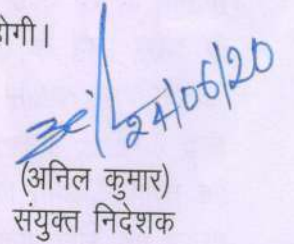 होगी।
24/06/20
(अनिल कुमार)
संयुक्त निदेशक